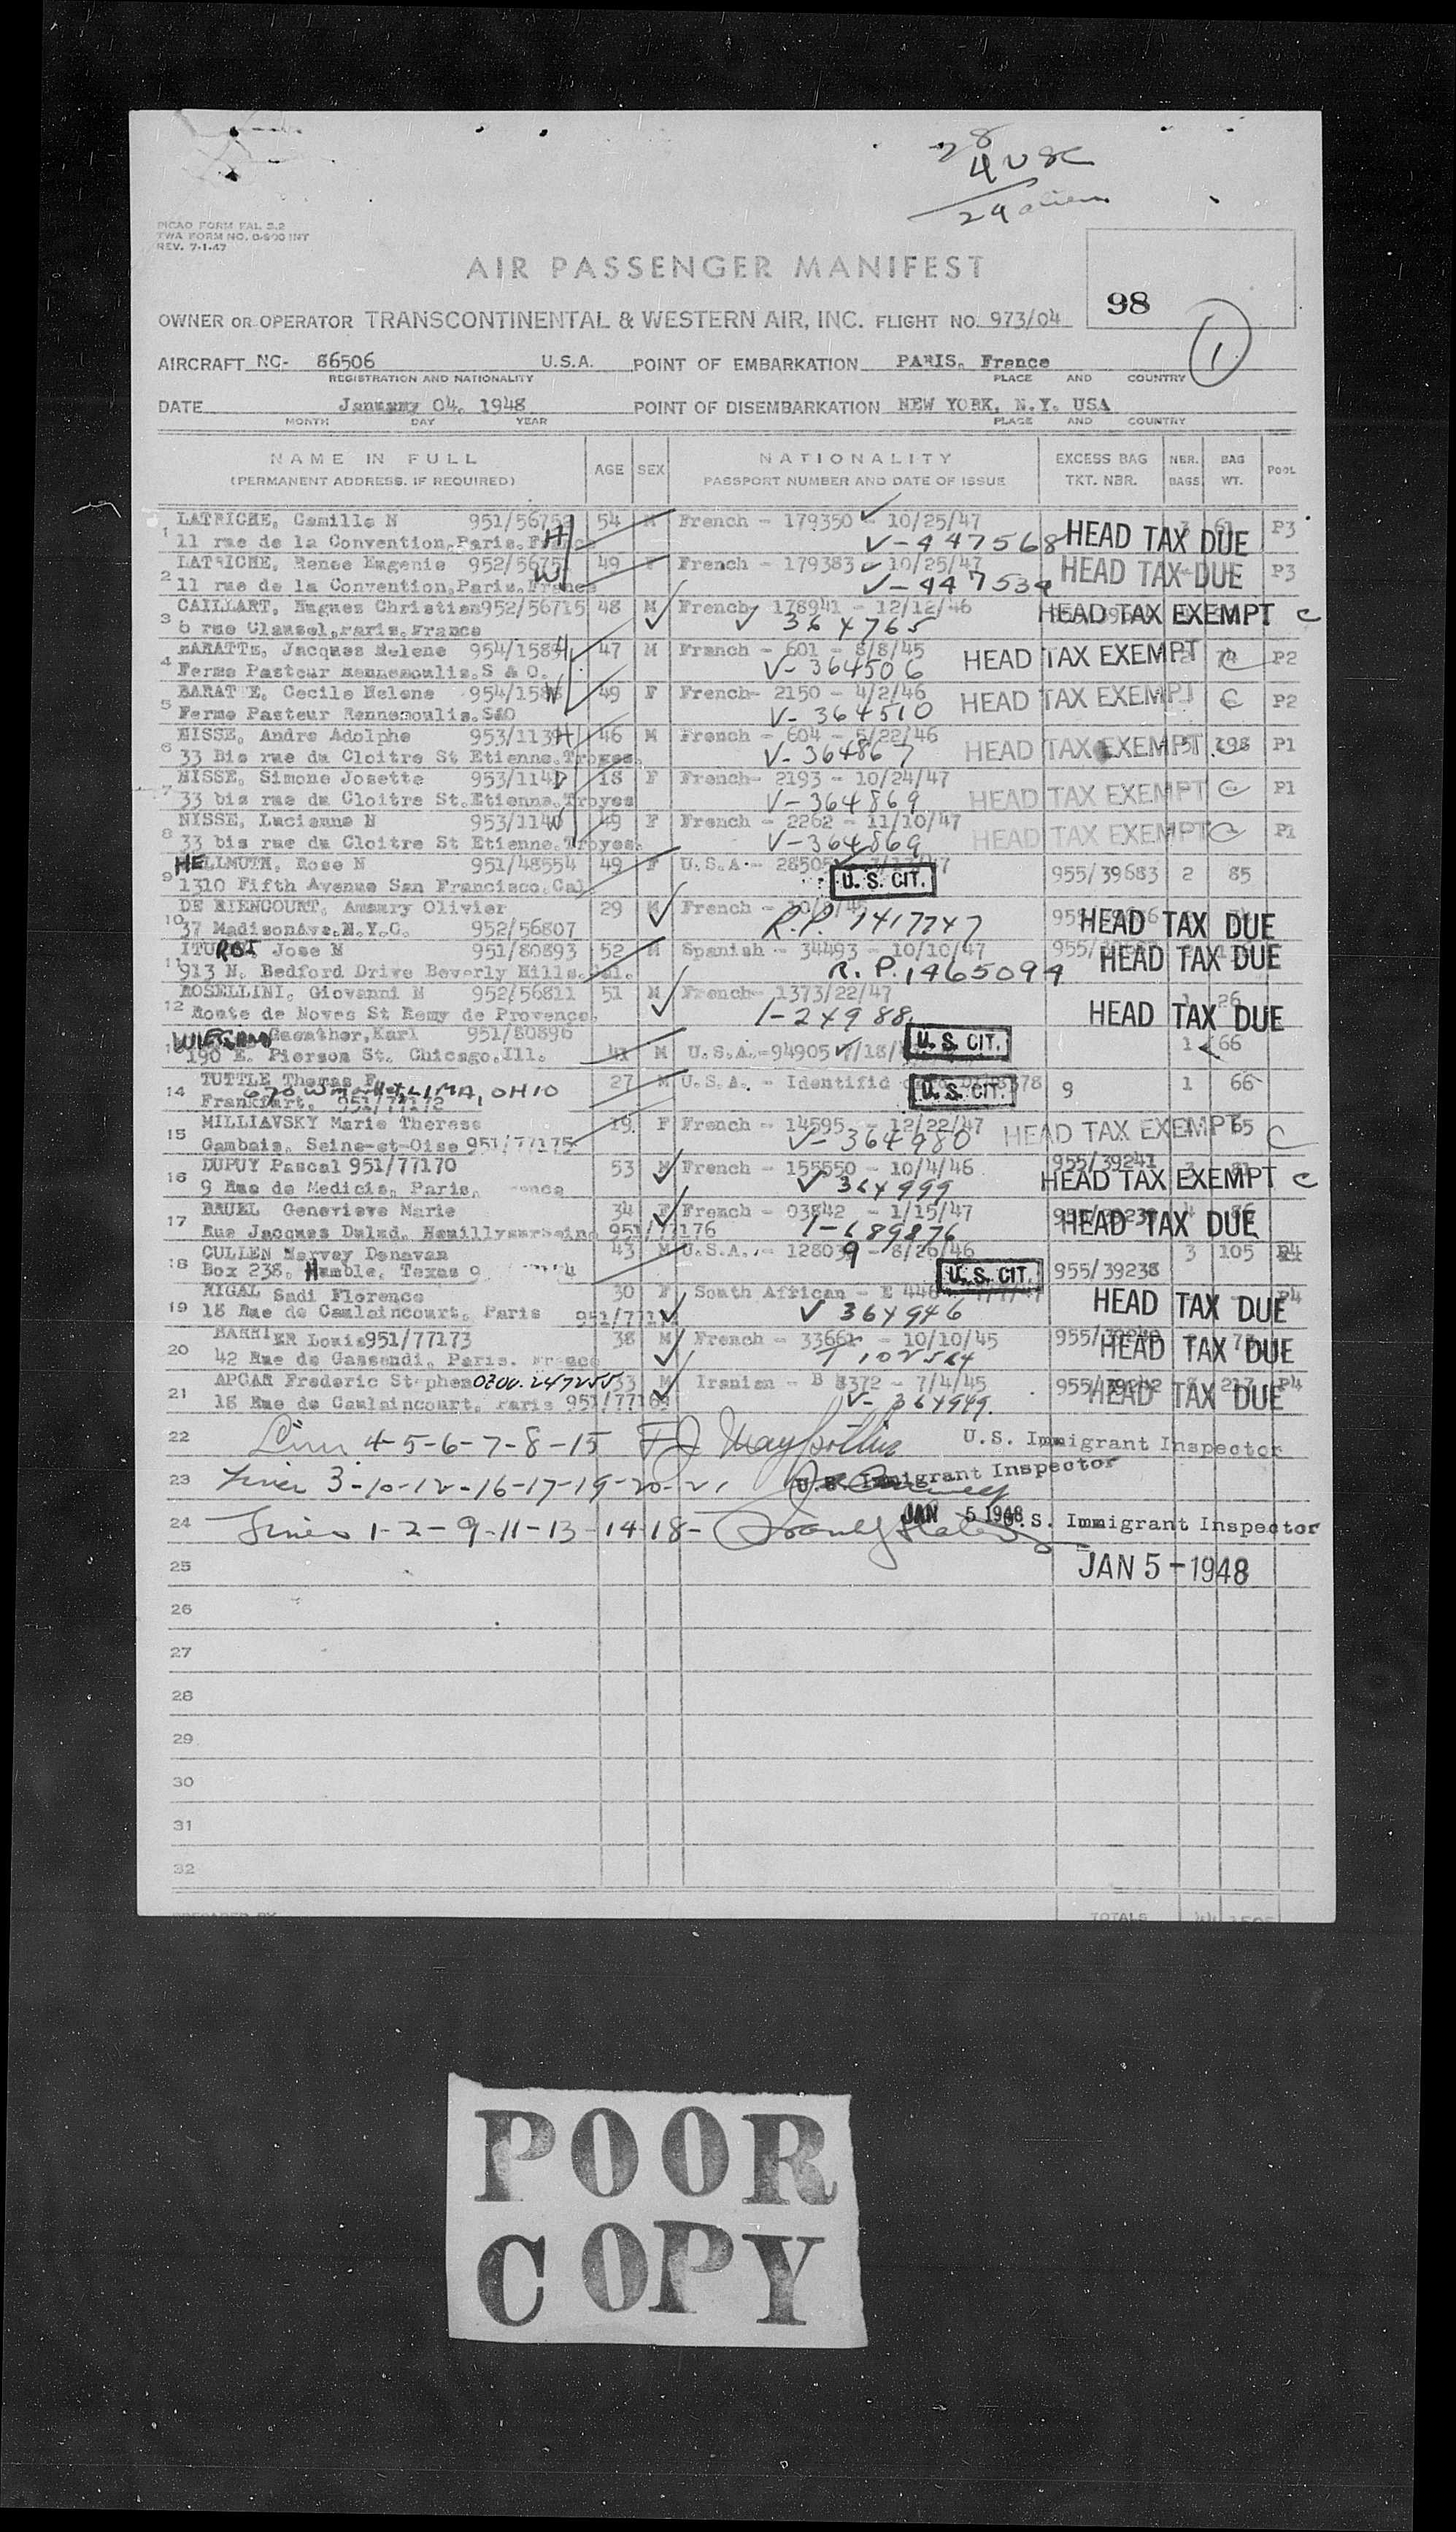 28
4 USC
24 aliens
PICAO FORM FAL 2.2
TWA FORM NO. 0-800 INT
REV. 7-1-47
AIR PASSENGER MANIFEST
98
OWNER OR OPERATOR TRANSCONTINENTAL & WESTERN AIR, INC. FLIGHT NO. 973/04
1
AIRCRAFT NC- 86506 U.S.A. POINT OF EMBARKATION PARIS, France
REGISTRATION AND NATIONALITY PLACE AND COUNTRY
DATE January 04, 1948 POINT OF DISEMBARKATION NEW YORK, N.Y. USA
MONTH DAY YEAR PLACE AND COUNTRY
NAME IN FULL AGE SEX NATIONALITY EXCESS BAG NBR. BAG POOL
(PERMANENT ADDRESS, IF REQUIRED) PASSPORT NUMBER AND DATE OF ISSUE TKT. NBR. BAGS WT.
LATRICHE, Camille N 951/5675 54 M French - 179350 - 10/25/47 P3
1 11 rue de la Convention, Paris, France H V-447568 HEAD TAX DUE
LATRICHE, Renee Eugenie 952/5675 49 F French - 179383 - 10/25/47 P3
2 11 rue de la Convention, Paris, France W V-447534 HEAD TAX DUE
CAILLART, Hugues Christian 952/56715 48 M French- 178941 - 12/12/46 HEAD TAX EXEMPT C
3 6 rue Clausel, Paris, France V 364765
BARATTE, Jacques Melene 954/1583 H 47 M French - 601 - 8/8/45 HEAD TAX EXEMPT P2
4 Ferme Pasteur Rennemoulis, S & O. V-364506
BARATTE, Cecile Helene 954/158 W 49 F French- 2150 - 4/2/46 HEAD TAX EXEMPT C P2
5 Ferme Pasteur Rennemoulis, S&O V-364510
NISSE, Andre Adolphe 953/1139 H 46 M French - 604 - 5/22/46 HEAD TAX EXEMPT 198 P1
6 33 Bis rue du Cloitre St Etienne, Troyes V-364867
NISSE, Simone Josette 953/114 D 18 F French- 2193 - 10/24/47 HEAD TAX EXEMPT C P1
7 33 bis rue du Cloitre St. Etienne, Troyes V-364869
NISSE, Lucienne N 953/1140 W 49 F French - 2262 - 11/10/47 HEAD TAX EXEMPT C P1
8 33 bis rue du Cloitre St Etienne, Troyes V-364869
HELLMUTH, Rose N 951/48554 49 F U.S.A - 28505 955/39683 2 85
9 1310 Fifth Avenue San Francisco, Cal U. S. CIT.
DE RIENCOURT, Amaury Olivier 29 M French - HEAD TAX DUE
10 37 MadisonAve. N.Y.C. 952/56807 R.P. 1417747
ITURBI Jose N 951/80893 52 M Spanish - 34493 - 10/10/47 HEAD TAX DUE
11 913 N. Bedford Drive Beverly Hills. Cal. R.P. 1465094
ROSELLINI, Giovanni N 952/56811 51 M French- 1373/22/47 26
12 Route de Noves St Remy de Provence, 1-24988 HEAD TAX DUE
WIEGAND Guenther, Karl 951/80896 U. S. CIT.
13 190 E. Pierson St. Chicago, Ill. 41 M U.S.A.-94905 7/18/ 1 66
TUTTLE Thomas F. 27 M U.S.A. - Identific 9 1 66
14 Frankfurt, 951/77172 LIMA, OHIO U. S. CIT.
MILLIAVSKY Marie Therese 19 F French - 14595 - 12/22/47 HEAD TAX EXEMPT 65
15 Gambais, Seine-et-Oise 951/77175 V-364980 C
DUPUY Pascal 951/77170 53 M French - 155550 - 10/4/46 955/39241
16 9 Rue de Medicis, Paris, V 364999 HEAD TAX EXEMPT C
BRUEL Genevieve Marie 34 F French - 03842 - 1/15/47 HEAD TAX DUE
17 Rue Jacques Dulud, Neuillysurseine 951/77176 1-689876
CULLEN Harvey Donavan 43 M U.S.A. - 128039 - 8/26/46 3 105 P4
18 Box 238, Humble, Texas U. S. CIT. 955/39238
RIGAL Sadi Florence 30 F South African - E 446 P4
19 18 Rue de Caulaincourt, Paris V 364946 HEAD TAX DUE
BARRIER Louis 951/77173 38 M French - 33661 - 10/10/45 HEAD TAX DUE
20 42 Rue de Gassendi, Paris. France 102564
APCAR Frederic Stephen 0200.247255 33 M Iranian - B 8372 - 7/4/45 HEAD TAX DUE 217 P4
21 18 Rue de Caulaincourt, Paris 951/77169 V- 364949
22 Lines 4-5-6-7-8-15 U.S. Immigrant Inspector
23 Lines 3-10-12-16-17-19-20-21 U.S. Immigrant Inspector
JAN 5 1948
24 Lines 1-2-9-11-13-14-18- U.S. Immigrant Inspector
25 JAN 5-1948
26
27
28
29
30
31
32
PREPARED BY TOTALS
POOR
COPY